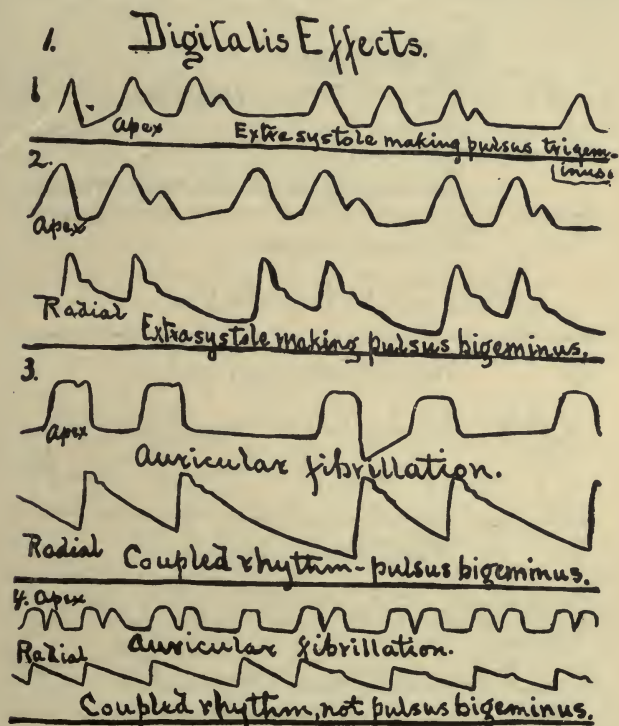 1. Digitalis Effects.
1
apex Extrasystole making pulsus trigem-
inus.
2.
apex
Radial
Extrasystole making pulsus bigeminus.
3.
apex
Auricular fibrillation.
Radial Coupled rhythm-pulsus bigeminus.
4. apex
Auricular fibrillation.
Radial
Coupled rhythm, not pulsus bigeminus.